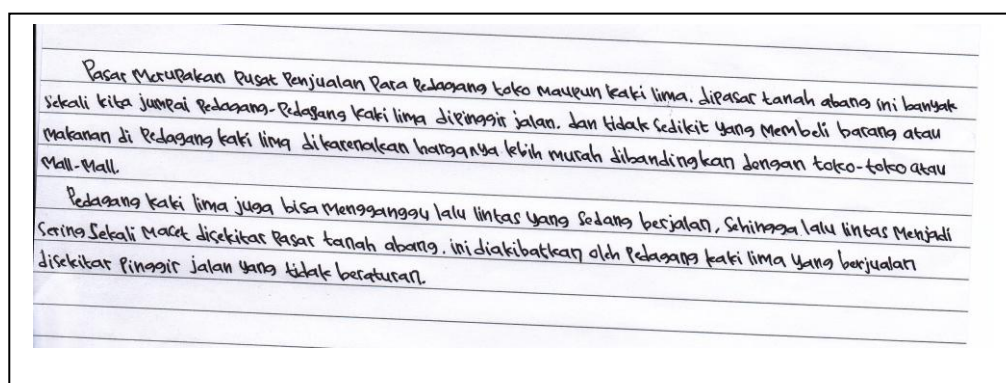 Pasar Merupakan Pusat Penjualan Para Pedagang toko maupun kaki lima. dipasar tanah abang ini banyak
sekali kita jumpai Pedagang-Pedagang kaki lima dipinggir jalan. dan tidak sedikit yang membeli barang atau
makanan di Pedagang kaki lima dikarenakan harganya lebih murah dibandingkan dengan toko-toko atau
Mall-Mall.
Pedagang kaki lima juga bisa mengganggu lalu lintas yang sedang berjalan, sehingga lalu lintas menjadi
sering sekali macet disekitar Pasar tanah abang. ini diakibatkan oleh Pedagang kaki lima yang berjualan
disekitar Pinggir jalan yang tidak beraturan.